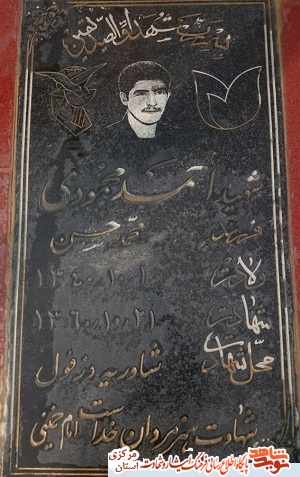 بسم رب الشهداء و الصدیقین
شهید احمد بهبودی
فرزند محمدحسن
ولادت ۱۳۴۰،۱۰،۱
شهادت ۱۳۶۰،۱۰،۲۱
محل شهادت شاوریه دزفول
شهادت هنر مردان خداست امام خمینی
نوید شاهد
پایگاه اطلاع رسانی فرهنگ ایثار و شهادت
استان مرکزی